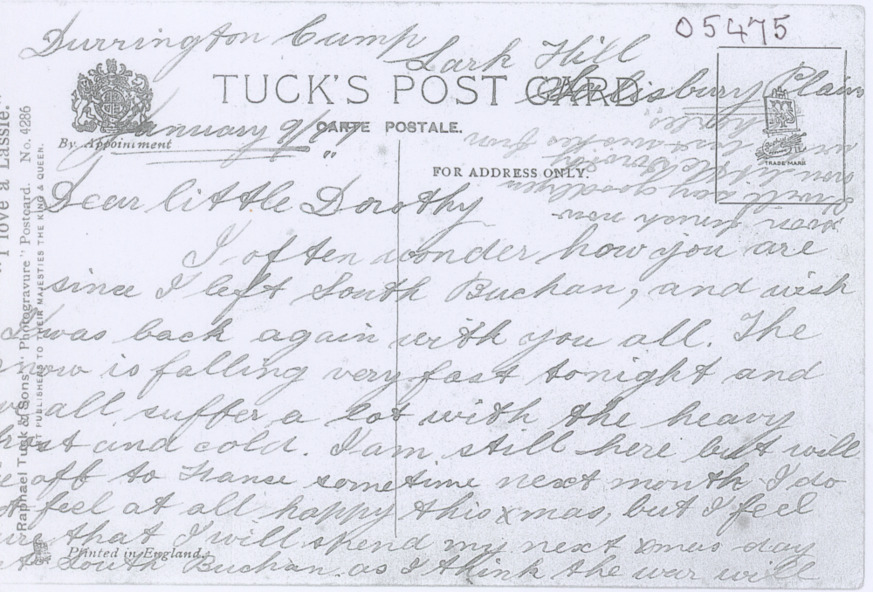 05475
Durrington Camp
Lark Hill
Salisbury Plain
January 9/17
TUCK'S POST CARD
CARTE POSTALE.
By Appointment
FOR ADDRESS ONLY.
TRADE MARK
Dear little Dorothy
I often wonder how you are
since I left South Buchan, and wish
I was back again with you all. The
snow is falling very fast tonight and
we all suffer a lot with the heavy
frost and cold. I am still here but will
be off to France sometime next month I do
not feel at all happy this xmas, but I feel
sure that I will spend my next xmas day
at South Buchan as I think the war will
over french now
I will say goodbye
little Dorothy
best wishes from
"I love a Lassie."
Raphael Tuck & Sons' "Photogravure" Postcard. No. 4286
ART PUBLISHERS TO THEIR MAJESTIES THE KING & QUEEN.
Printed in England.